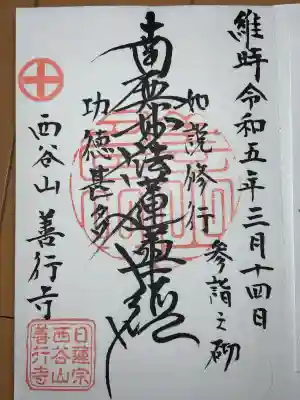 維時令和五年三月十四日
参詣之砌
如説修行
南無妙法蓮華経
功徳甚多
西谷山 善行寺
日蓮宗
西谷山
善行寺